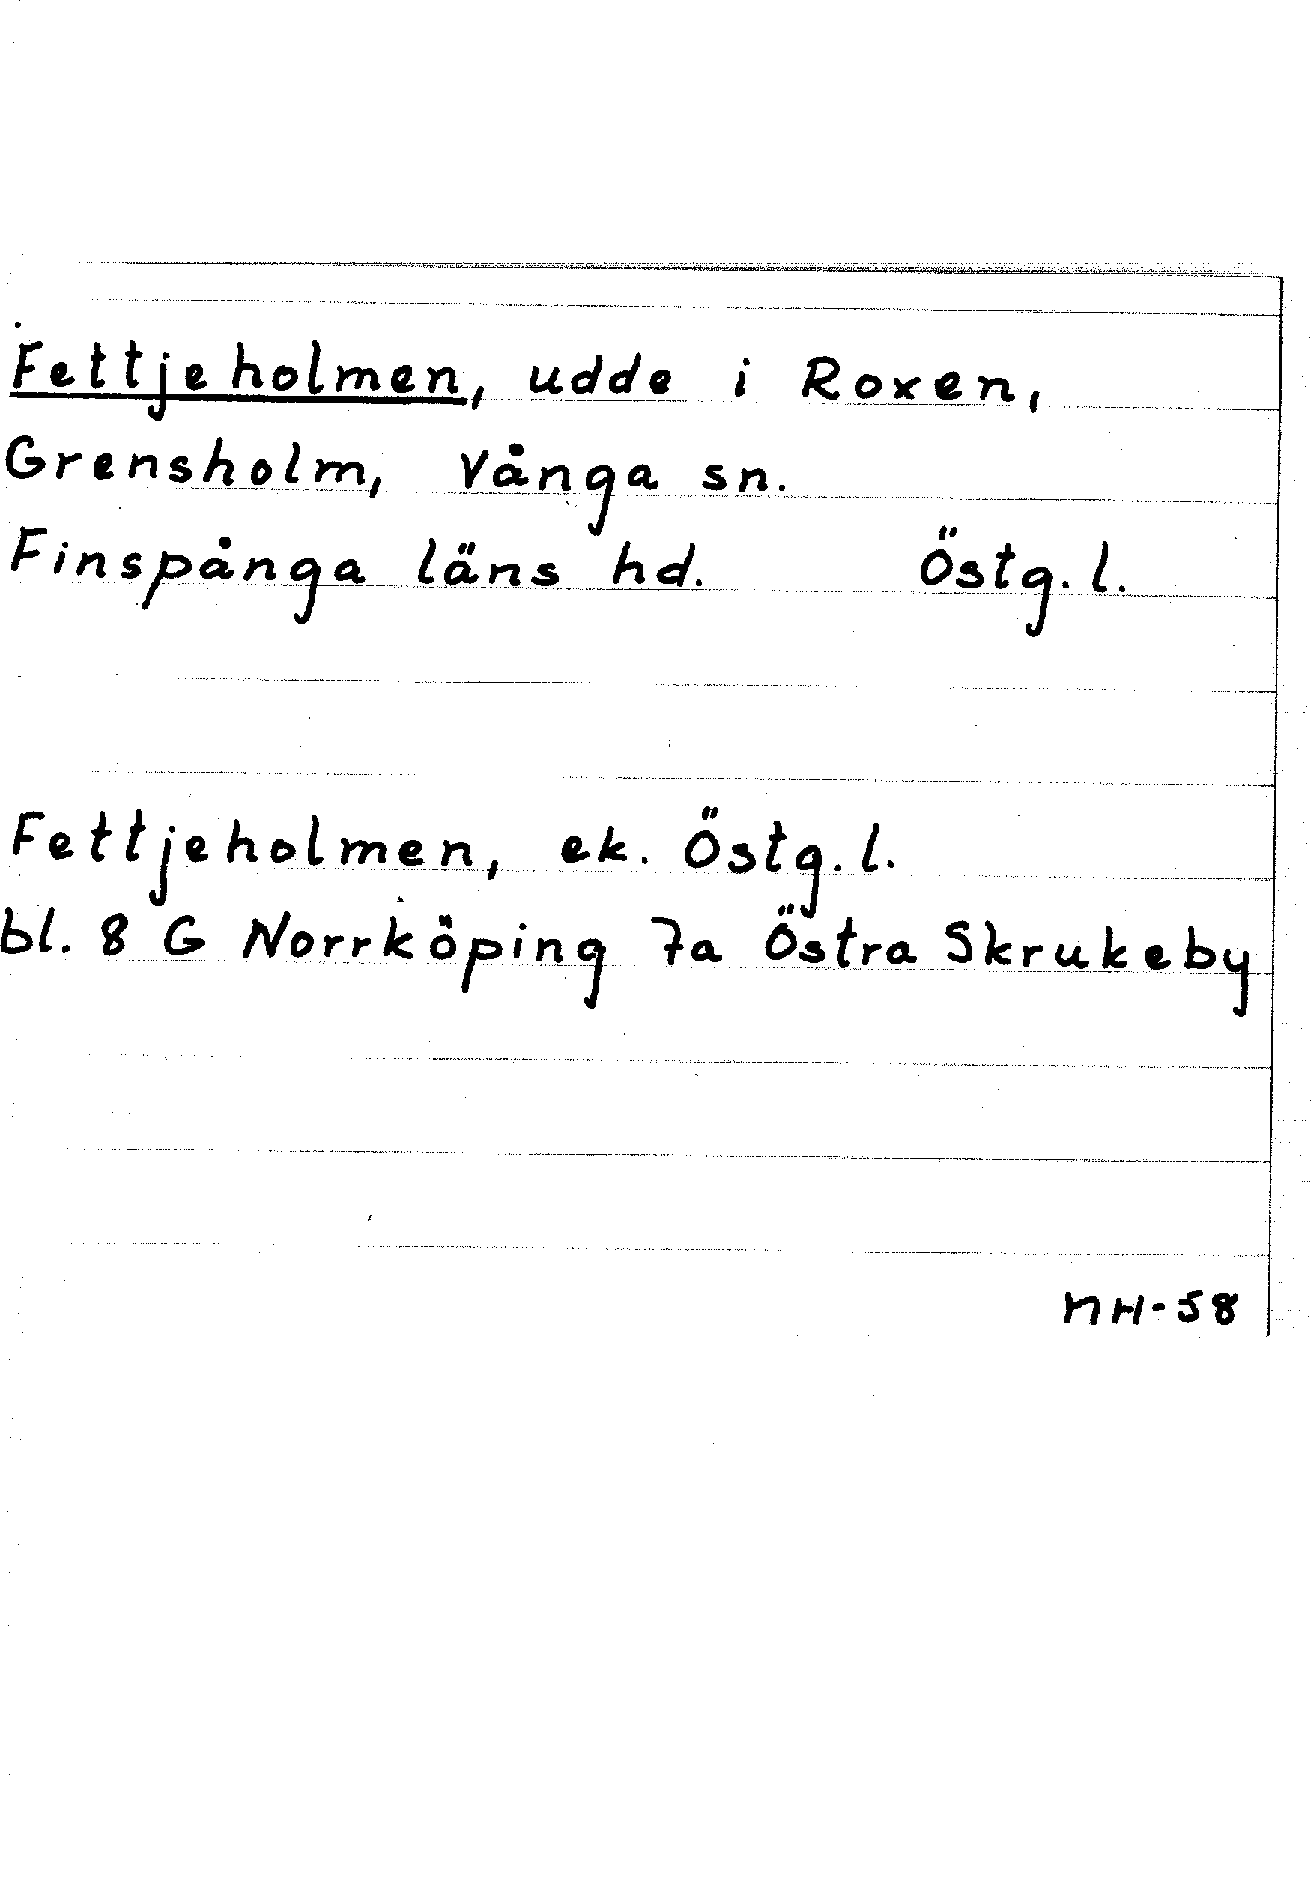 Fettjeholmen, udde i Roxen,
Grensholm, Vånga sn.
Finspånga läns hd. Östg. l.
Fettjeholmen, ek. Östg. l.
bl. 8 G Norrköping 7a Östra Skrukeby
NH-58